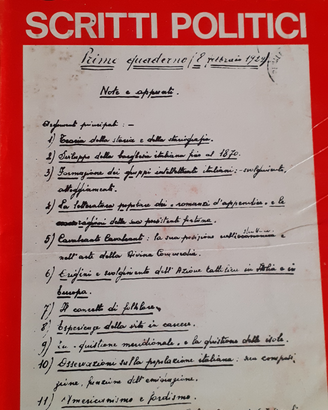 SCRITTI POLITICI
Primo quaderno (8 febbraio 1929)
Note e appunti.
Argomenti principali: –
1) Teoria della storia e della storiografia.
2) Sviluppo della borghesia italiana fino al 1870.
3) Formazione dei gruppi intellettuali italiani: – svolgimento,
atteggiamenti.
4) La letteratura popolare dei "romanzi d'appendice" e le
ragioni della sua persistente fortuna.
5) Cavalcante Cavalcanti: la sua posizione nella
nell'arte della Divina Commedia.
6) Origini e svolgimento dell'Azione Cattolica in Italia e in
Europa.
7) Il concetto di folklore.
8) Esperienze della vita in carcere.
9) La "quistione meridionale" e la quistione delle isole.
10) Osservazioni sulla popolazione italiana: sua composi-
zione, funzione dell'emigrazione.
11) Americanismo e fordismo.